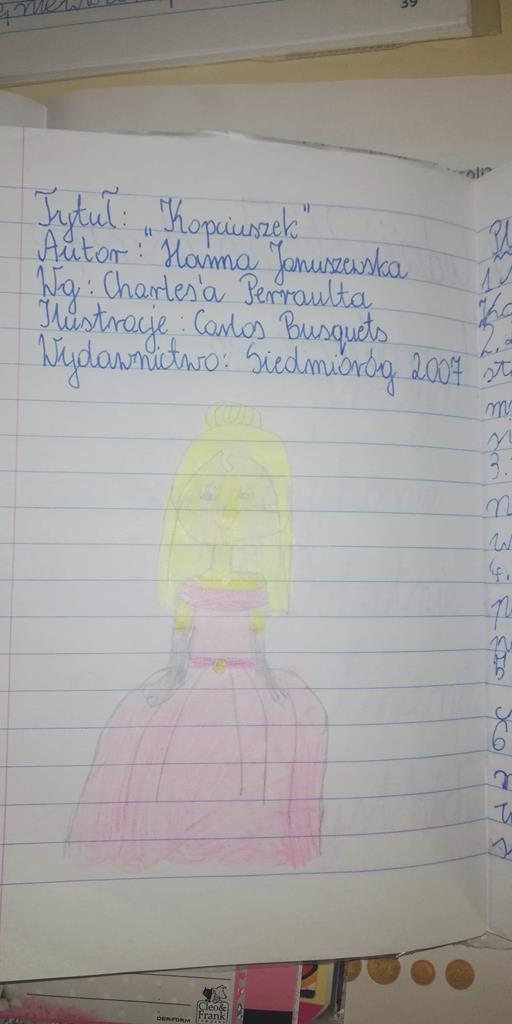 39
Tytuł: „Kopciuszek"
Autor: Hanna Januszewska
Wg: Charles'a Perraulta
Ilustracje: Carlos Busquets
Wydawnictwo: Siedmioróg 2007
1
2.
3.
4.
5
6
DERFORM
Cleo&
Frank